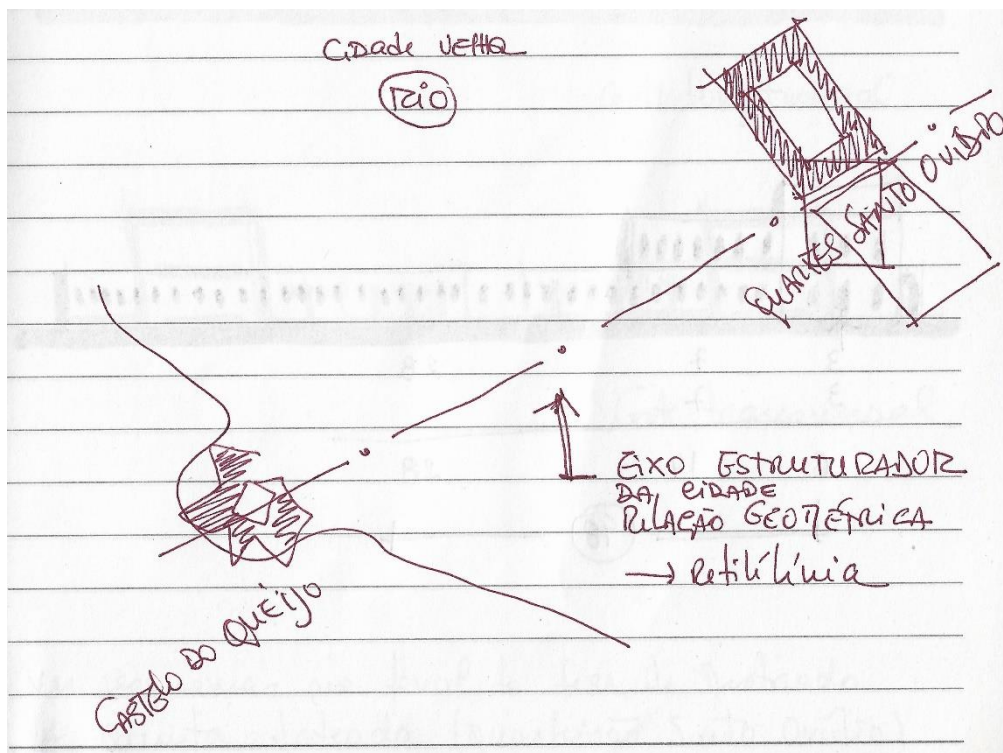 CIDADE VELHA
RIO
QUARTEL SANTO OVIDIO
EIXO ESTRUTURADOR
DA CIDADE
RELAÇÃO GEOMÉTRICA
→ Retilílinia
CASTELO DO QUEIJO